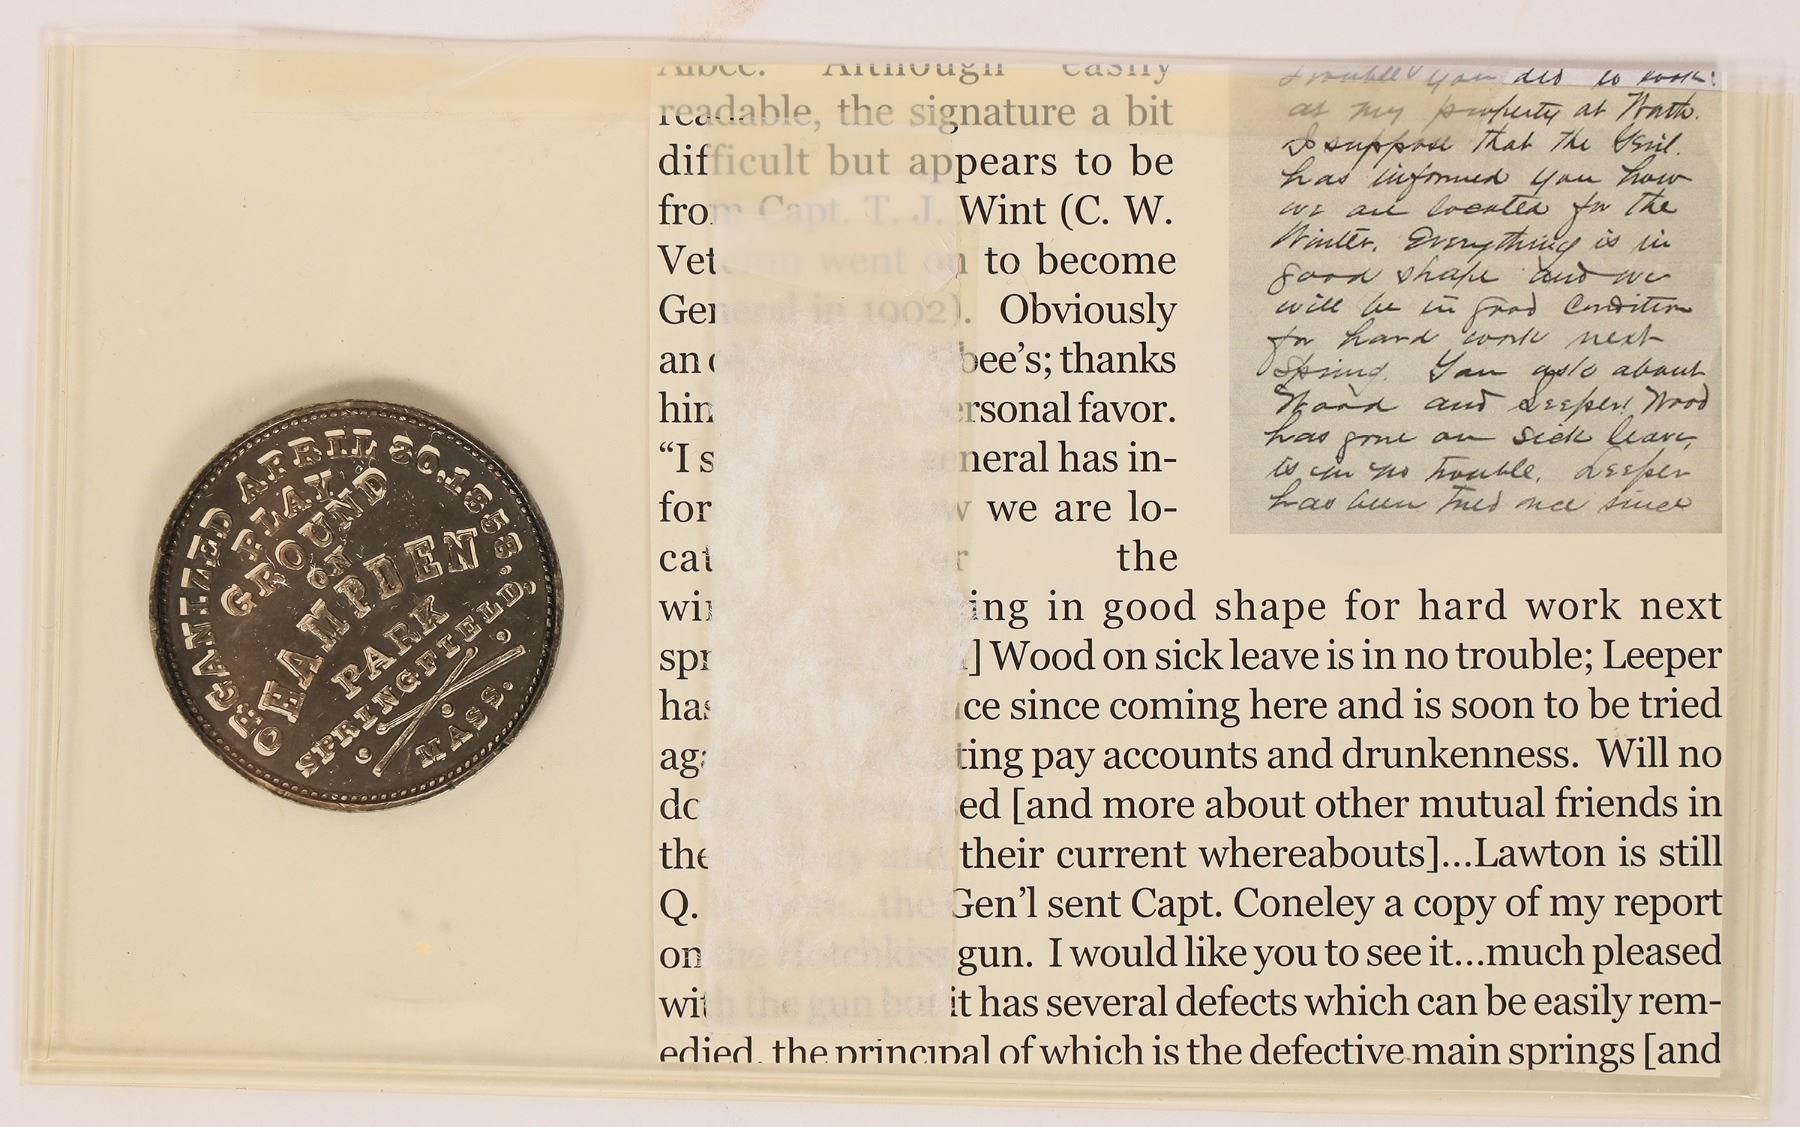 ORGANIZED APRIL 30, 1858.
PLAY
GROUND
ON
HAMPDEN
PARK
SPRINGFIELD,
MASS.
Albee. Although easily
readable, the signature a bit
difficult but appears to be
from Capt. T. J. Wint (C. W.
Veteran went on to become
General in 1902). Obviously
an bee's; thanks
him ersonal favor.
“I s general has in-
for w we are lo-
cat er the
win ing in good shape for hard work next
spr ] Wood on sick leave is in no trouble; Leeper
has nce since coming here and is soon to be tried
aga ting pay accounts and drunkenness. Will no
do ed [and more about other mutual friends in
the and their current whereabouts]...Lawton is still
Q. here...the Gen'l sent Capt. Coneley a copy of my report
on the Hotchkiss gun. I would like you to see it...much pleased
with the gun but it has several defects which can be easily rem-
edied, the principal of which is the defective main springs [and
trouble you did to work
at my property at Worth.
I suppose that the Genl.
has informed you how
we are located for the
Winter. Everything is in
good shape and we
will be in good condition
for hard work next
Spring. You ask about
Wood and Leeper. Wood
has gone on sick leave,
is in no trouble. Leeper
has been tried once since